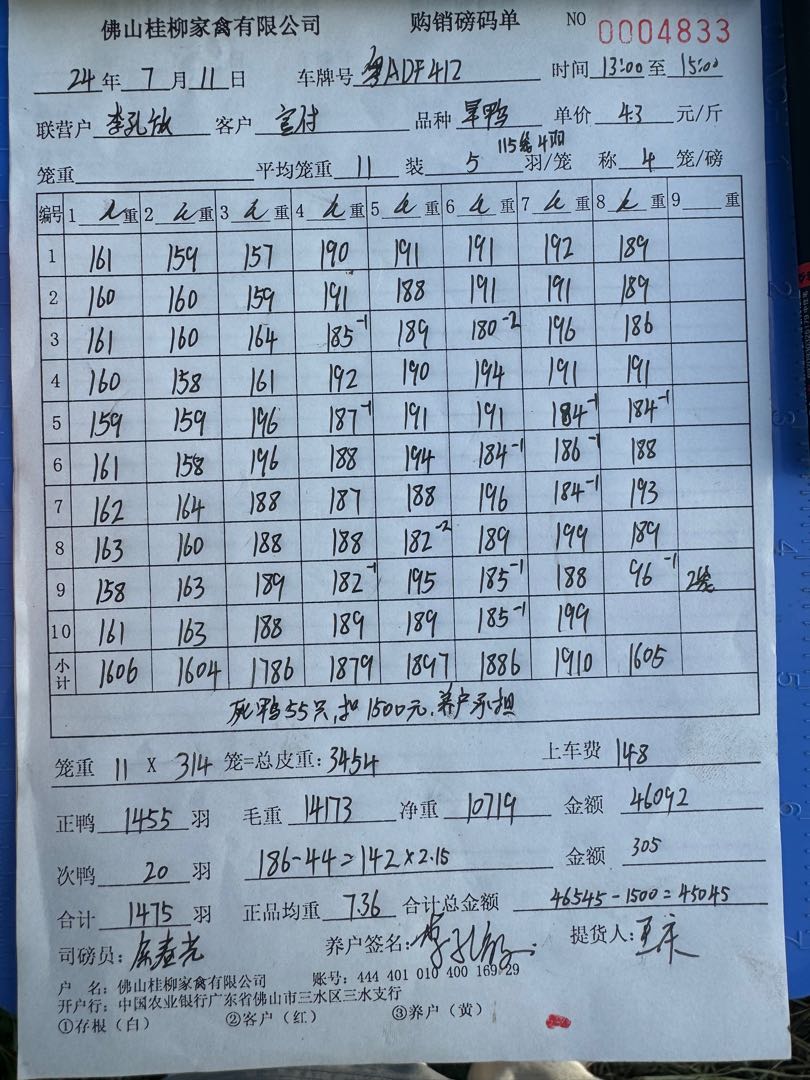 佛山桂柳家禽有限公司 购销磅码单 NO 0004833
24 年 7 月 11 日 车牌号 粤ADF412 时间 13:00 至 15:00
联营户 李孔敏 客户 宣付 品种 旱鸭 单价 43 元/斤
115笼4羽
笼重 平均笼重 11 装 5 羽/笼 称 4 笼/磅
编号 1 重 2 重 3 重 4 重 5 重 6 重 7 重 8 重 9 重
1 161 159 157 190 191 191 192 189
2 160 160 159 191 188 191 191 189
3 161 160 164 185-1 189 180-2 196 186
4 160 158 161 192 190 194 191 191
5 159 159 196 187-1 191 191 184-1 184-1
6 161 158 196 188 194 184-1 186-1 188
7 162 164 188 187 188 196 184-1 193
8 163 160 188 188 182-2 189 199 189
9 158 163 189 182-1 195 185-1 188 96-1 2笼
10 161 163 188 189 189 185-1 199
小计 1606 1604 1786 1879 1897 1886 1910 1605
死鸭55只,扣1500元.养户承担
笼重 11 X 314 笼=总皮重: 3454 上车费 148
正鸭 1455 羽 毛重 14173 净重 10719 金额 46092
次鸭 20 羽 186-44=142×2.15 金额 305
合计 1475 羽 正品均重 7.36 合计总金额 46545-1500=45045
司磅员: 养户签名: 李孔敏 提货人: 王庆
户 名: 佛山桂柳家禽有限公司 账号: 444 401 010 400 169 29
开户行: 中国农业银行广东省佛山市三水区三水支行
①存根(白) ②客户(红) ③养户(黄)